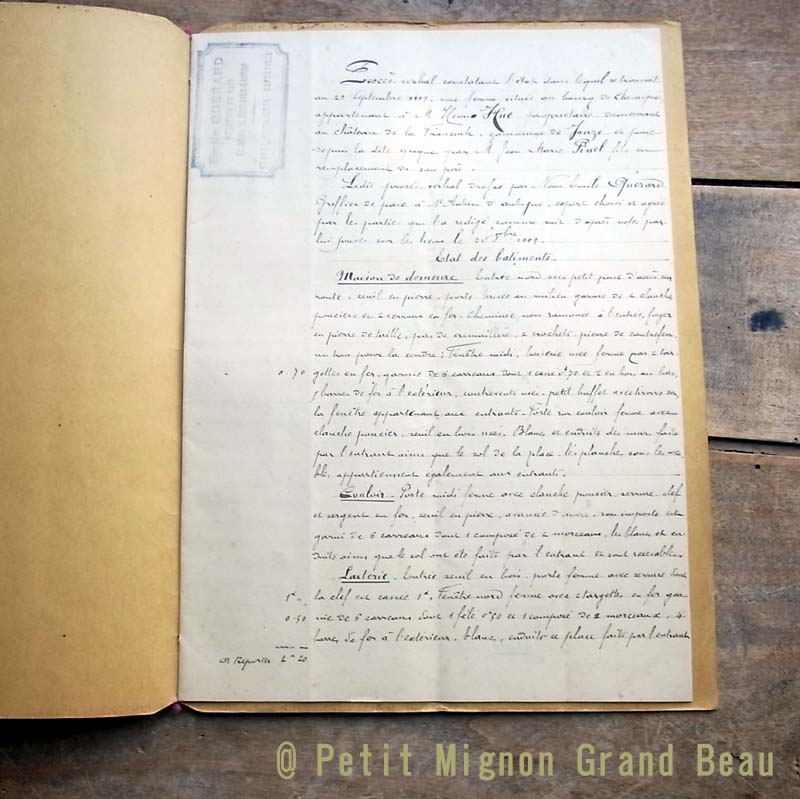 Emile GUÉRARD
Procès verbal constatant l'état dans lequel se trouvait
au 29 Septembre 1909, une ferme située au bourg de
appartenant à M Henri Hue, propriétaire demeurant
au château de la Franceule, commune de Janzé et
depuis la dite époque par M Jean Marie Pinel fils, en
remplacement de son père.
Ledit procès verbal dressé par Nous Emile Guérard
Greffier de paix à St Aubin d'Aubigné, expert choisi et agréé
par les parties qui l'a rédigé comme suit d'après note par
lui prises sur les lieux le 1909.
Etat des bâtiments.
Maison de demeure. Entrée nord avec petit pavé d'accès
route, seuil en pierre, porte brisée au milieu garnie de 2 clanches
pouciers et 2 verrous en fer. Cheminée non ramonée à l'entrée, foyer
en pierre de taille, pas de crémaillère, 2 crochets, pierre de contrefeu,
un trou pour la cendre; Fenêtre midi, boiserie usée fermée par 2 tar-
0.70 gettes en fer, garnie de 6 carreaux dont 1 cassé 0f70 et 2 en bon au bas,
barres de fer à l'extérieur, contrevents usés. petit buffet avec tiroirs sous
la fenêtre appartenant aux entrants. Porte sur couloir ferme avec
clanche poucier, seuil en bois usés. Blancs et enduits des murs faits
par l'entrant ainsi que le sol de la place. les planches sous les
appartiennent également aux entrants.
Couloir. Porte midi ferme avec clanche poucier, serrure, clef
et sergent en fer, seuil en pierre, son imposte est
garni de 6 carreaux dont 1 composé de 2 morceaux, les blancs et en-
duits ainsi que le sol ont été faits par l'entrant et sont
Laiterie. Entrée seuil en bois. porte ferme avec serrure dont
1f " la clef est cassée 1f, Fenêtre nord ferme avec 2 targettes en fer gar-
0.50 nie de 6 carreaux dont 1 fêlé 0f50 et 1 composé de 2 morceaux, 4
barres de fer à l'extérieur, blancs, enduits et place faits par l'entrant
A Reporter 2f 20
@ Petit Mignon Grand Beau